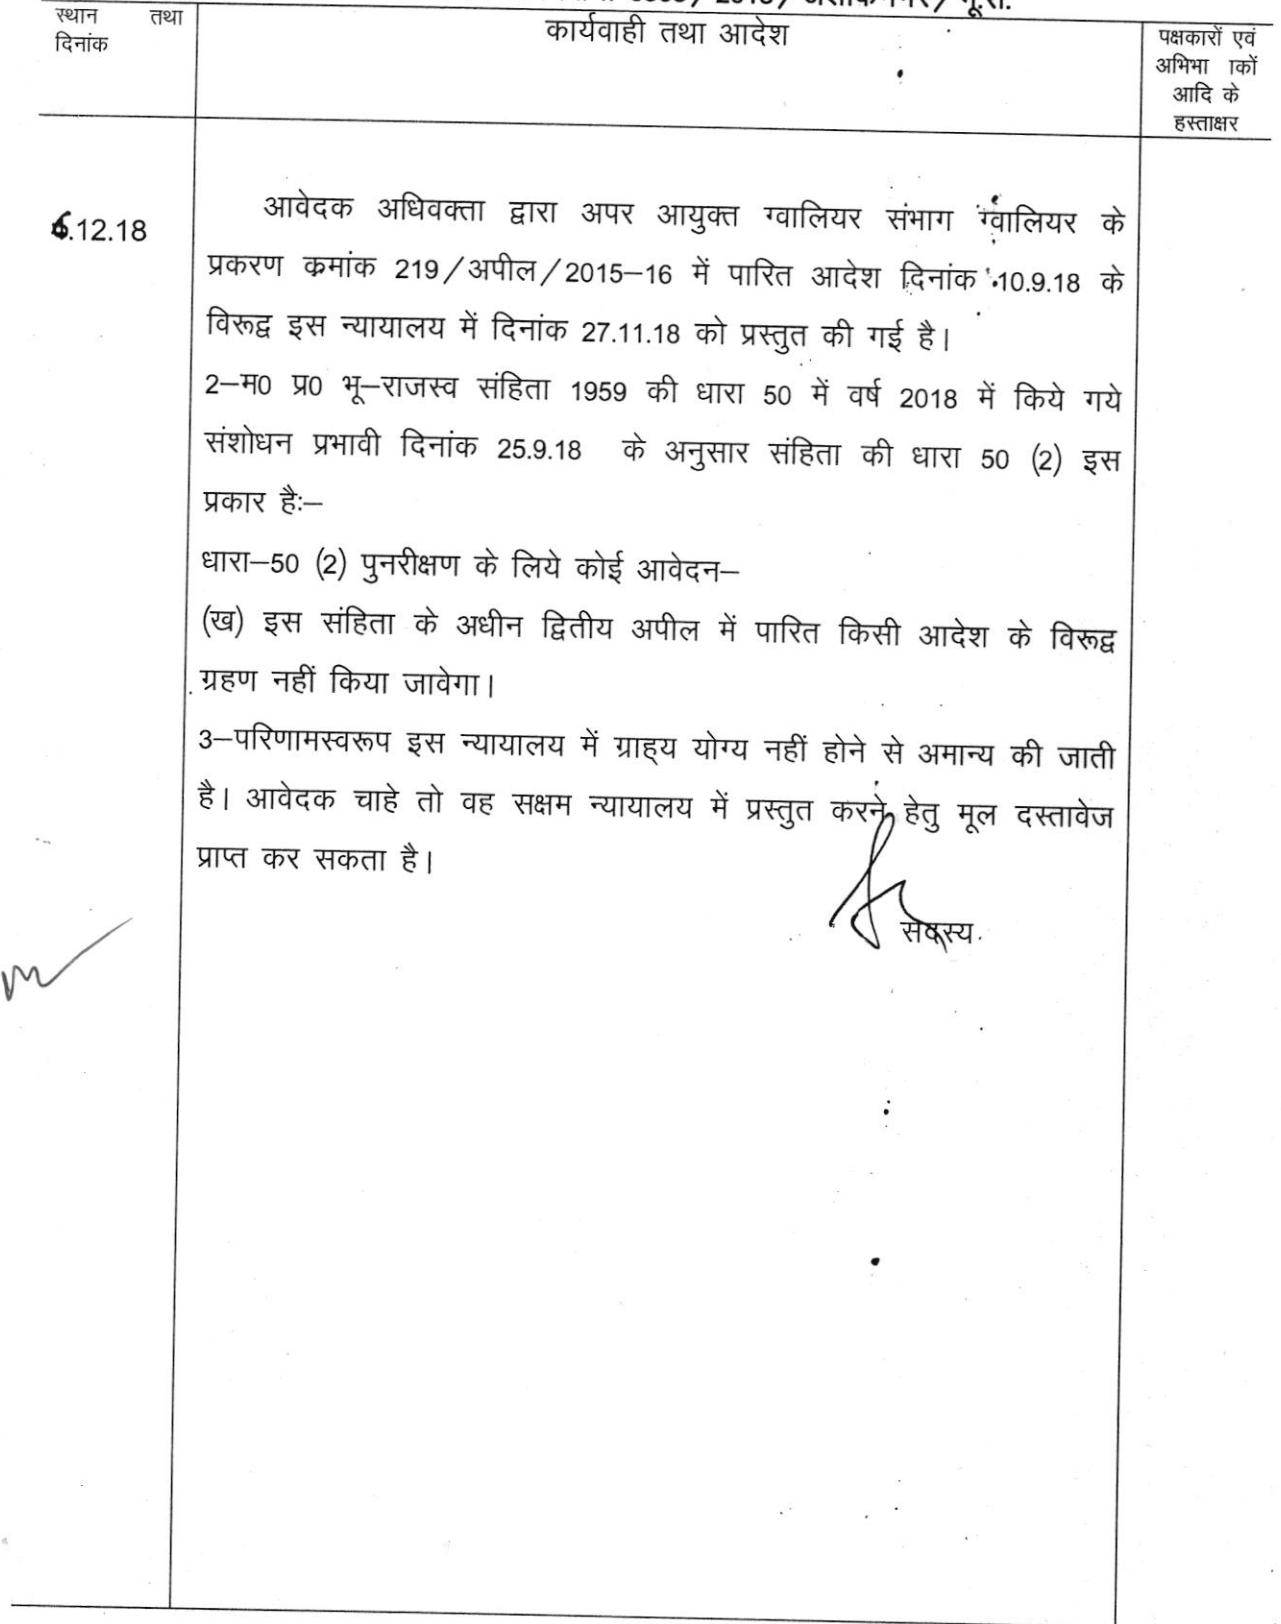 2018/ अशोकनगर/ भू.रा.
स्थान तथा
दिनांक
कार्यवाही तथा आदेश
पक्षकारों एवं
अभिभा ाकों
आदि के
हस्ताक्षर
6.12.18
आवेदक अधिवक्ता द्वारा अपर आयुक्त ग्वालियर संभाग ग्वालियर के
प्रकरण कमांक 219/अपील/2015–16 में पारित आदेश दिनांक 10.9.18 के
विरूद्व इस न्यायालय में दिनांक 27.11.18 को प्रस्तुत की गई है।
2–म0 प्र0 भू–राजस्व संहिता 1959 की धारा 50 में वर्ष 2018 में किये गये
संशोधन प्रभावी दिनांक 25.9.18 के अनुसार संहिता की धारा 50 (2) इस
प्रकार है:–
धारा–50 (2) पुनरीक्षण के लिये कोई आवेदन–
(ख) इस संहिता के अधीन द्वितीय अपील में पारित किसी आदेश के विरूद्व
ग्रहण नहीं किया जावेगा।
3–परिणामस्वरूप इस न्यायालय में ग्राह्य योग्य नहीं होने से अमान्य की जाती
है। आवेदक चाहे तो वह सक्षम न्यायालय में प्रस्तुत करने हेतु मूल दस्तावेज
प्राप्त कर सकता है।
सदस्य